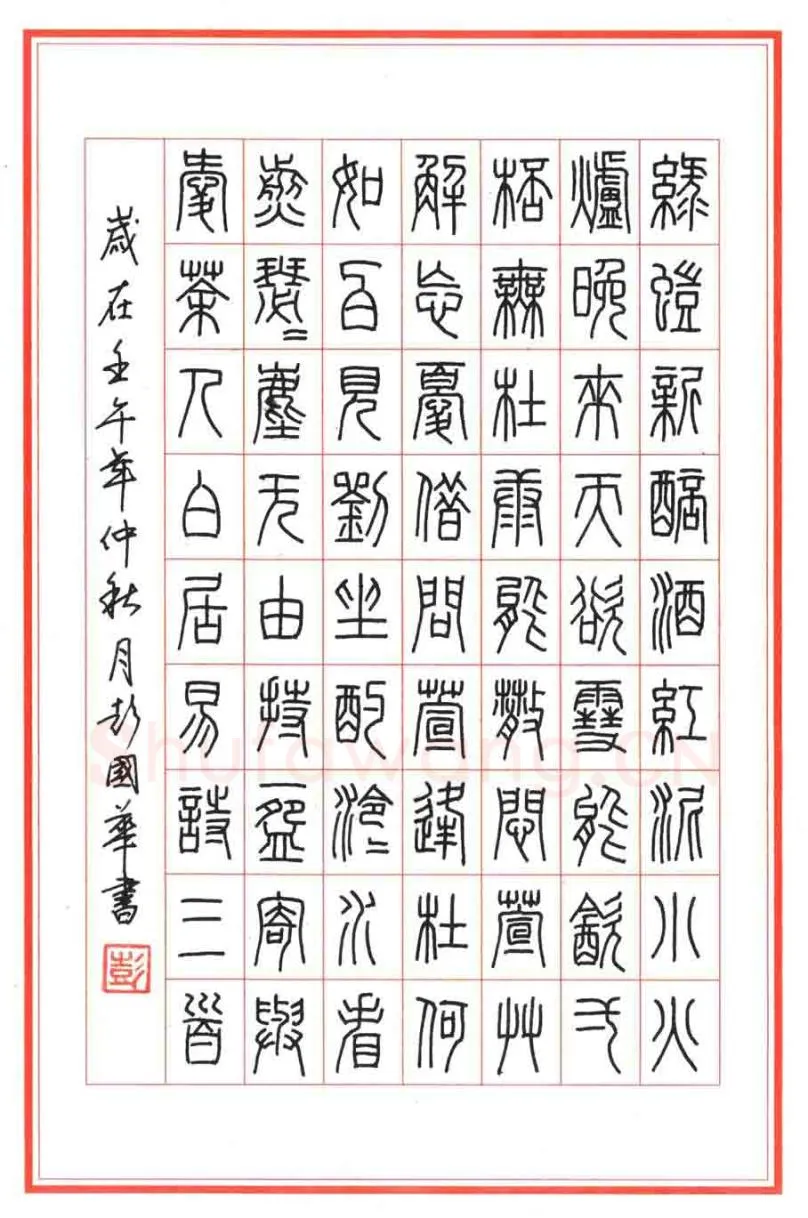 綠螘新醅酒紅泥小火
爐晚來天欲雪能飲弌
桮無杜康能散悶萱艸
解忘憂借問萱逢杜何
如百見劉坐酌泠〻水看
煎瑟〻塵无由持一盌寄與
愛茶人白居易詩三首
歲在壬午年仲秋月彭國華書
彭
Shufawang.CN